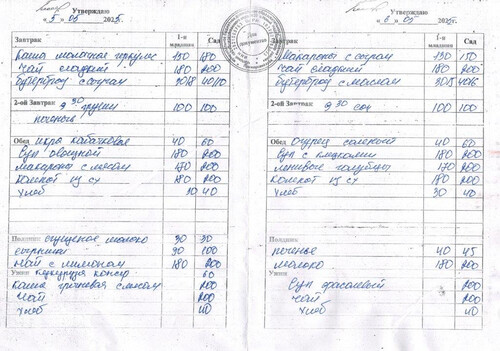 Утверждаю
«5» 05 2025г.
Завтрак 1-я младшая Сад
Каша молочная геркулес 150 180
Чай сладкий 180 200
Бутерброд с сыром 30/5 40/10
2-ой Завтрак 9 30 груши 100 100
печенье
Обед икра кабачковая 40 60
Суп овощной 180 200
Макароны с мясом 170 200
Компот из сх 180 200
Хлеб 30 40
Полдник сгущеное молоко 30 30
сырники 90 100
Чай с лимоном 180 200
Ужин кукуруза консер 60
Каша гречневая с мясом 200
Чай 200
Хлеб 40
Для документов
Утверждаю
«6» 05 2025г.
Завтрак 1-я младшая Сад
Макароны с сыром 130 150
Чай сладкий 180 200
Бутерброд с маслом
2-ой Завтрак 9 30 сок 100 100
Обед Огурец соленый 40 60
Суп с клецками 180 200
Ленивые голубцы 170 200
Компот из сх 180 200
Хлеб 30 40
Полдник
печенье 40 45
молоко 180 200
Ужин
Суп фасолевый 200
Чай 200
Хлеб 40